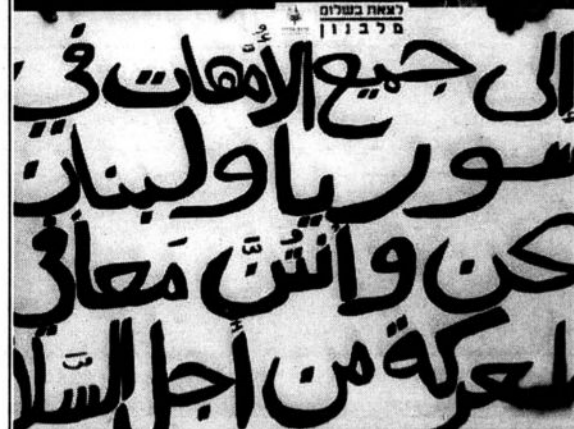 לצאת בשלום
מלבנון
إلى جميع الأُمّهات في
سوريا ولبنان
نحن وأنتُنَّ مَعا في
لمعركة من أجل السَّلا